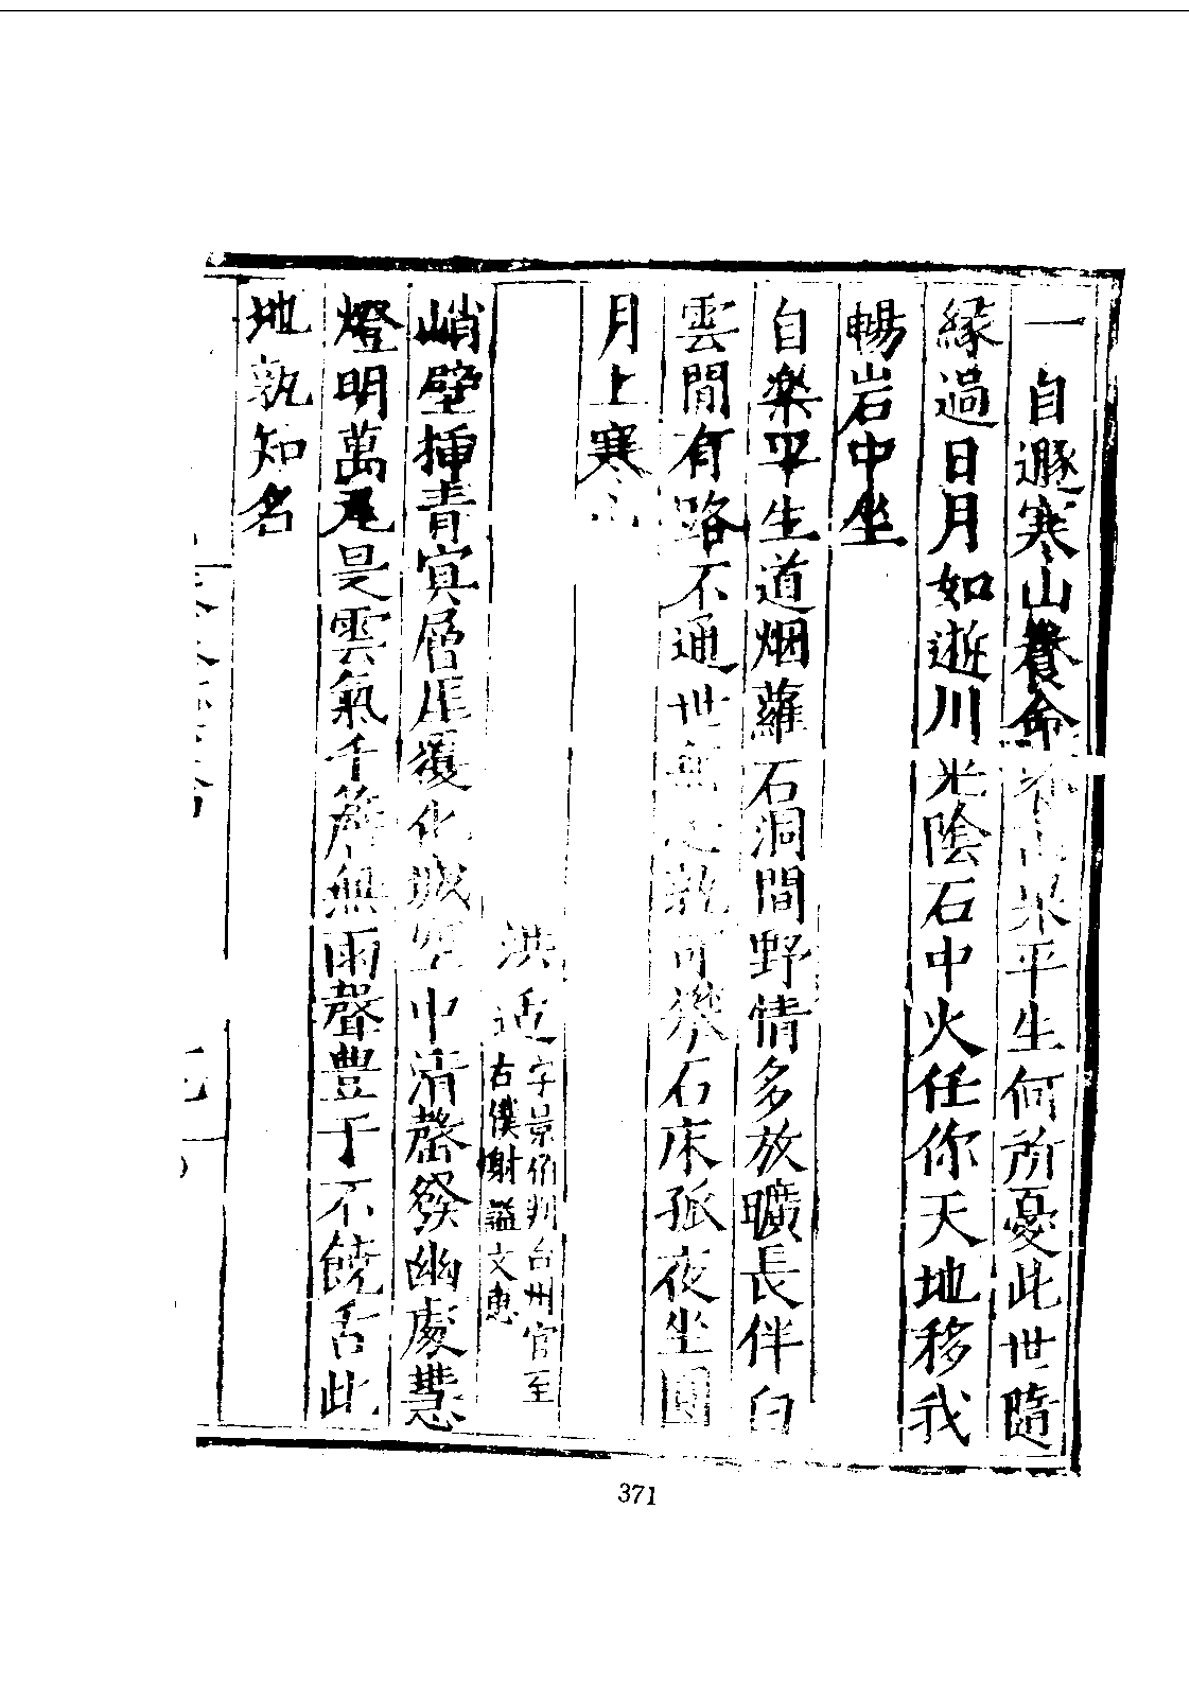 一自遯寒山養命 山果平生何所憂此世隨
緣過日月如逝川光陰石中火任你天地移我
暢岩中坐
自樂平生道烟蘿石洞間野情多放曠長伴白
雲閒有路不通世無 孰可攀石床孤夜坐圓
月上寒山
洪适字景伯判台州官至
右僕射謚文惠
峭壁揷青㝠層厓覆化城 中清磬發幽處慧
燈明萬 是雲氣千 無雨聲豊干不饒舌此
地孰知名
371